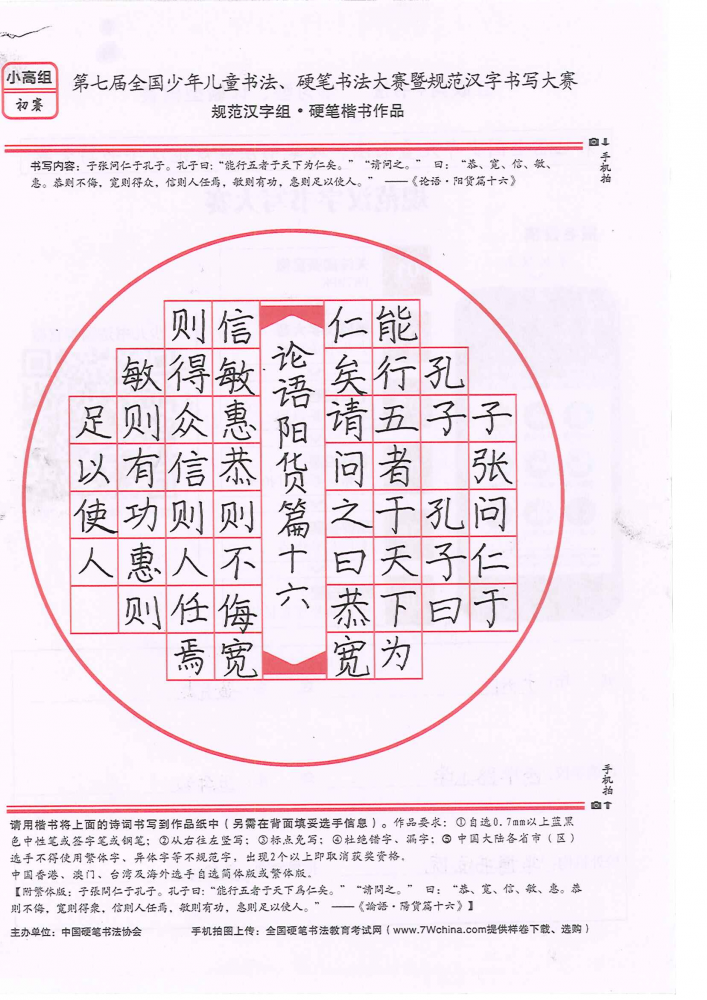 小高组
初赛
第七届全国少年儿童书法、硬笔书法大赛暨规范汉字书写大赛
规范汉字组·硬笔楷书作品
手机拍
书写内容：子张问仁于孔子。孔子曰：“能行五者于天下为仁矣。”“请问之。” 曰：“恭、宽、信、敏、
惠。恭则不侮，宽则得众，信则人任焉，敏则有功，惠则足以使人。” ——《论语·阳货篇十六》
子张问仁于
孔子 孔子曰
能行五者于天下为
仁矣请问之曰恭宽
论语阳货篇十六
信敏惠恭则不侮宽
则得众信则人任焉
敏则有功惠则
足以使人
手机拍
请用楷书将上面的诗词书写到作品纸中（另需在背面填妥选手信息）。作品要求：①自选0.7mm以上蓝黑
色中性笔或签字笔或钢笔；②从右往左竖写；③标点免写；④杜绝错字、漏字；⑤中国大陆各省市（区）
选手不得使用繁体字、异体字等不规范字，出现2个以上即取消获奖资格。
中国香港、澳门、台湾及海外选手自选简体版或繁体版。
【附繁体版：子張問仁于孔子。孔子曰：“能行五者于天下爲仁矣。”“請問之。” 曰：“恭、寬、信、敏、惠。恭
則不侮，寬則得衆，信則人任焉，敏則有功，惠則足以使人。” ——《論語·陽貨篇十六》】
主办单位：中国硬笔书法协会 手机拍图上传：全国硬笔书法教育考试网（www.7Wchina.com提供样卷下载、选购）